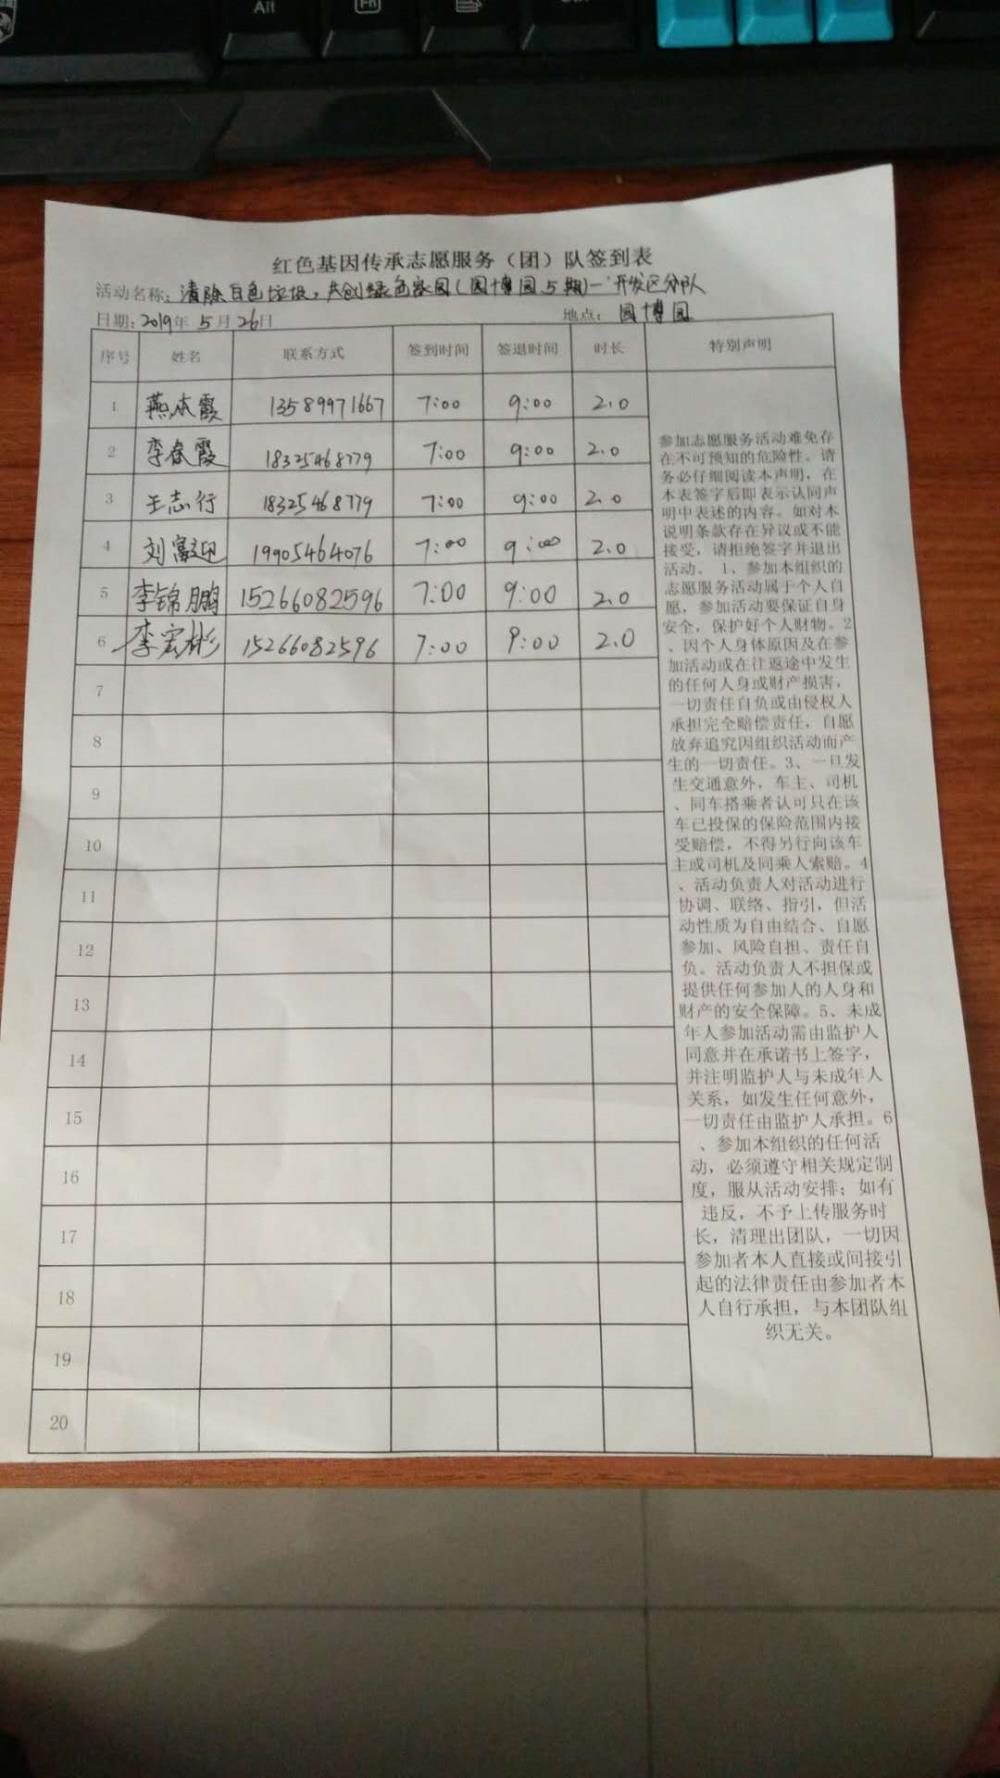 Alt
Fn
红色基因传承志愿服务（团）队签到表
活动名称：清除白色垃圾，共创绿色家园（园博园5期）一开发区分队
日期：2019年5月26日 地点：园博园
序号 姓名 联系方式 签到时间 签退时间 时长 特别声明
1 燕本霞 13589971667 7:00 9:00 2.0
2 李春霞 18325468779 7:00 9:00 2.0
3 王志行 18325468779 7:00 9:00 2.0
4 刘富迎 19905464076 7:00 9:00 2.0
5 李锦鹏 15266082596 7:00 9:00 2.0
6 李宏彬 15266082596 7:00 9:00 2.0
7
8
9
10
11
12
13
14
15
16
17
18
19
20
参加志愿服务活动难免存
在不可预知的危险性。请
务必仔细阅读本声明，在
本表签字后即表示认同声
明中表述的内容。如对本
说明条款存在异议或不能
接受，请拒绝签字并退出
活动。 1、参加本组织的
志愿服务活动属于个人自
愿，参加活动要保证自身
安全，保护好个人财物。2
、因个人身体原因及在参
加活动或在往返途中发生
的任何人身或财产损害，
一切责任自负或由侵权人
承担完全赔偿责任，自愿
放弃追究因组织活动而产
生的一切责任。3、一旦发
生交通意外，车主、司机
、同车搭乘者认可只在该
车已投保的保险范围内接
受赔偿，不得另行向该车
主或司机及同乘人索赔。4
、活动负责人对活动进行
协调、联络、指引，但活
动性质为自由结合、自愿
参加、风险自担、责任自
负。活动负责人不担保或
提供任何参加人的人身和
财产的安全保障。5、未成
年人参加活动需由监护人
同意并在承诺书上签字，
并注明监护人与未成年人
关系，如发生任何意外，
一切责任由监护人承担。6
、参加本组织的任何活
动，必须遵守相关规定制
度，服从活动安排；如有
违反，不予上传服务时
长，清理出团队，一切因
参加者本人直接或间接引
起的法律责任由参加者本
人自行承担，与本团队组
织无关。